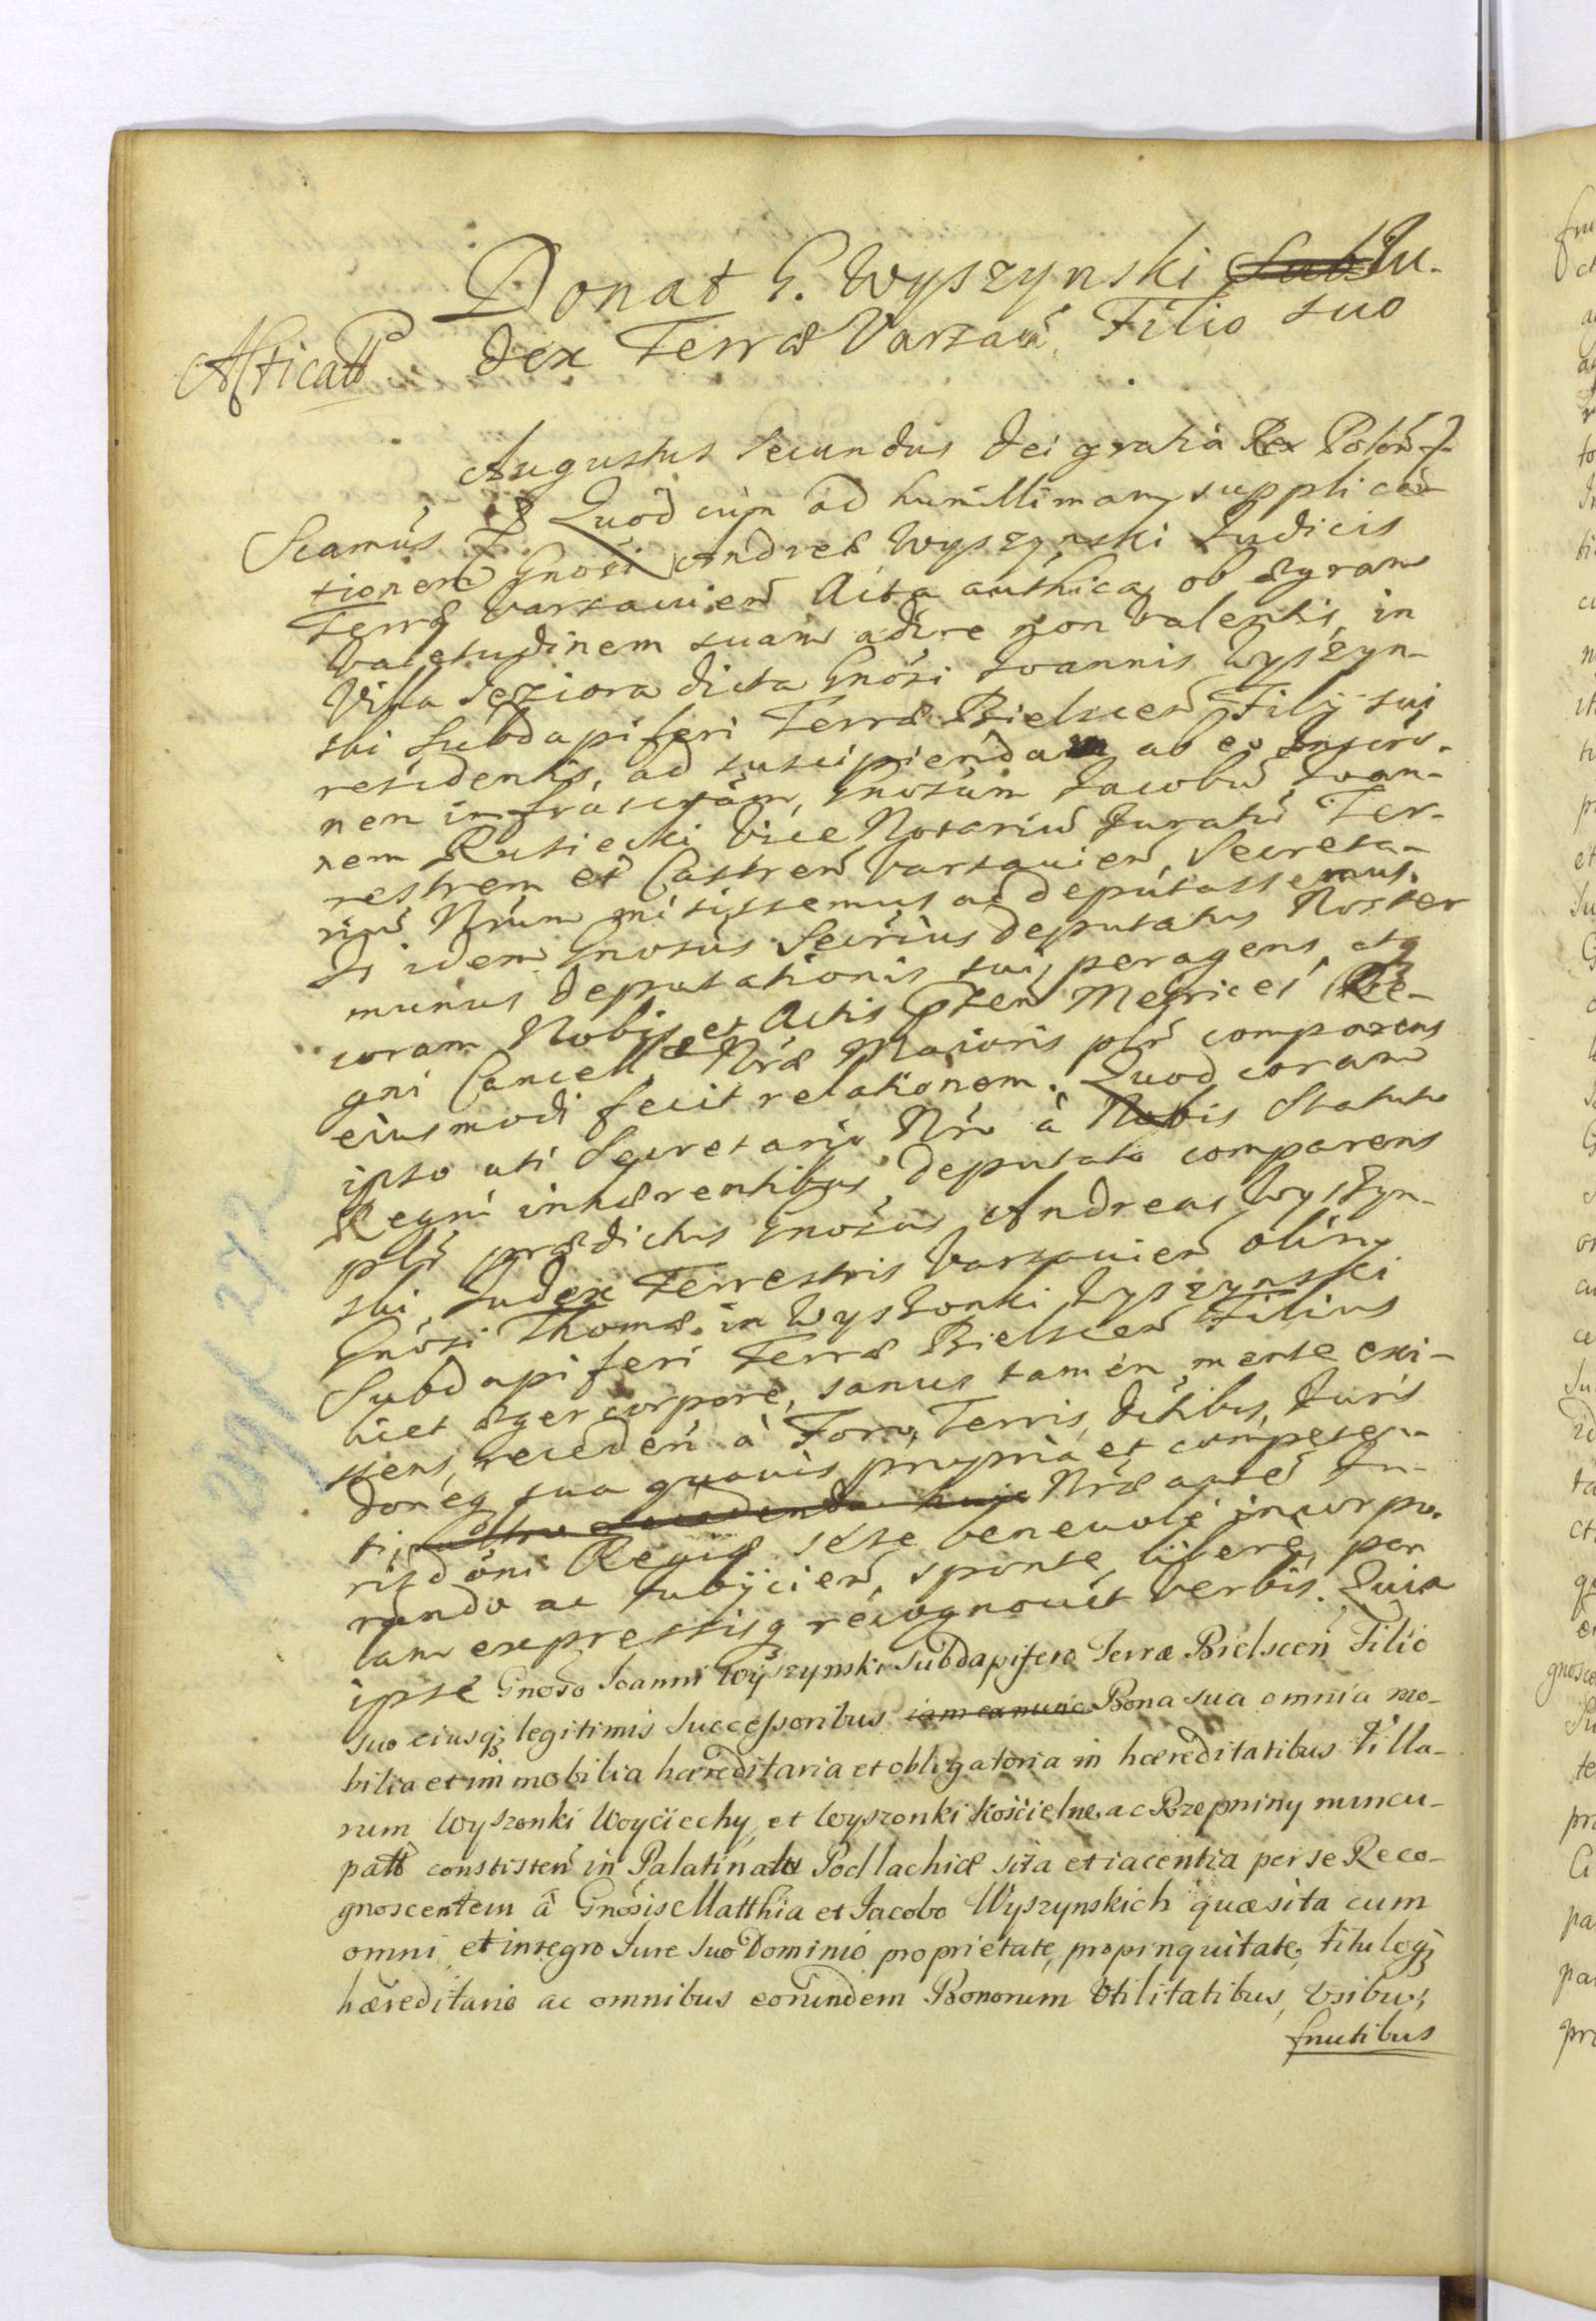 Donat G. Wyszynski Sub Ju-
dex Terræ Varsav. Filio suo
Augustus Secundus Dei gratia Rex Polon
Quod cum ad humillimam supplica-
tionem Gnosi Andreæ Wyszynski Judicis
Terræ Varsavien Acta authica, ob ægram
valetudinem suam adire non valentis, in
Villa Jeziora dicta Gnosi Joannis Wyszyn-
ski Subdapiferi Terræ Bielscen Filij sui
residentis, ad suscipiendam ab eo Inscrip-
nem infrascrptam, Gnosum Jacobu Joan-
nem Rusiecki Vice Notariu Juratu Ter-
restrem et Castren Varsavien, Secreta-
riu Nrum misissemus ac deputassemus.
Is idem Gnosus Secrius deputatus Noster
munus deputationis suæ peragens, atq
coram Nobis et Actis Pnten Metrices Re-
gni Cancell. Nræ Maioris plr comparens
eiusmodi fecit relationem. Quod coram
ipso uti Secretario Nro à Nobis Statuto
Regni inhærentibus deputato comparens
plr prædictus Gnosus Andreas Wyszyn-
ski, Judex Terrestris Varsavien olim
Gnosi Thomæ in Wyszonki Wyszynski
Subdapiferi Terræ Bielscen Filius
licet æger corpore, sanus tamen mente exi-
stens, receden à Foro, Terris, Ditibus, Juris
doneq sua quavis propria et competen-
ti, Nræ autè Ju-
risdoni Regiæ sese benevole incorpo-
rando ac subijcien, sponte, libere, per
lam expressisq recognovit verbis. Quia
ipse Gnoso Joanni Wyszynski Subdapifero Terræ Bielscen Filio
suo eiusq legitimis Successoribus iam ex nunc Bona sua omnia mo-
bilia et immobilia hæreditaria et obligatoria in hæreditatibus Villa-
rum Wyszonki Woyciechy, et Wyszonki Kościelne, ac Rzepniny nuncu-
patt consisten in Palatinatu Podlachiæ sita et iacentia per se Reco-
gnoscentem à Gnosis Matthia et Jacobo Wyszynskich quæsita cum
omni et integro Jure suo Dominio proprietate, propinquitate, tituloq
hæreditario ac omnibus eorundem Bonorum Vtilitatibus, Vsibus,
fructibus